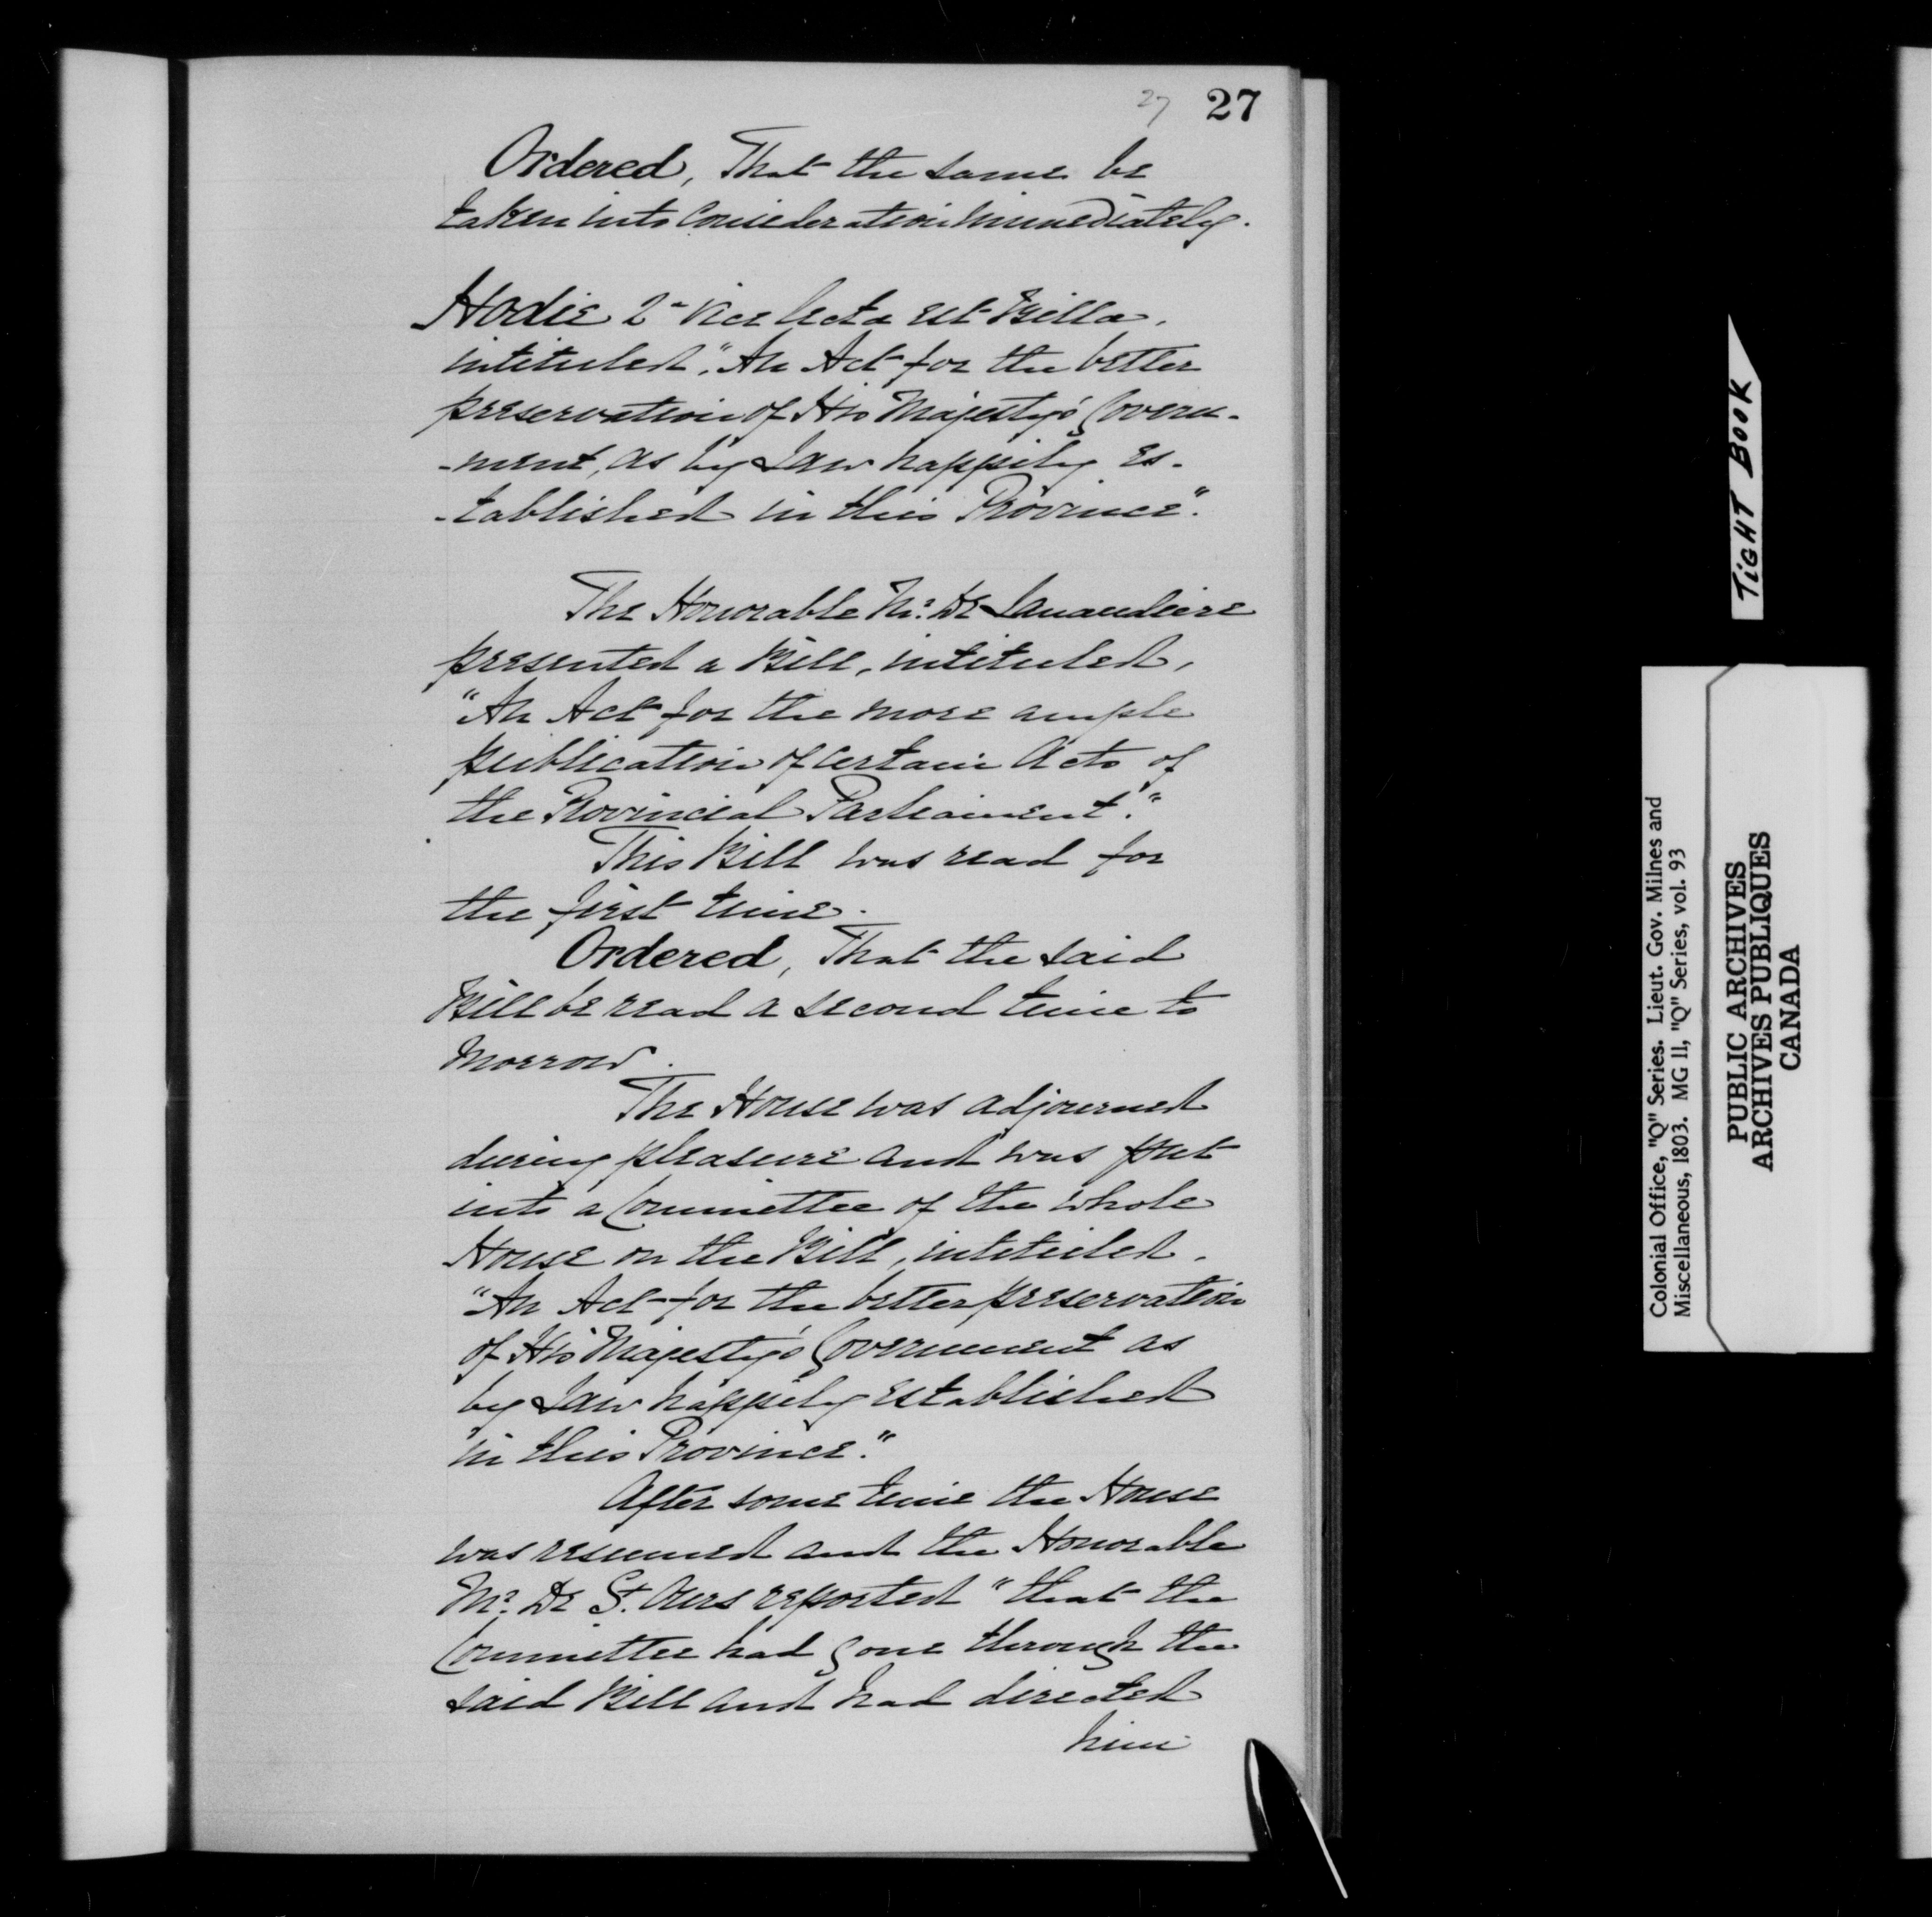 27 27
Ordered, That the same be
taken into Consideration immediately.
Hodie 2ᵃ Vice lecta est Billa,
intituled, "An Act for the better
preservation of His Majesty's Govern-
-ment, as by Law happily es-
-tablished in this Province."
The Honorable Mr. De Lanaudiere
presented a Bill, intituled,
"An Act for the more ample
publication of certain Acts of
the Provincial Parliament."
This Bill was read for
the first time.
Ordered, That the said
Bill be read a second time to
morrow.
The House was adjourned
during pleasure and was put
into a Committee of the whole
House on the Bill, intituled,
"An Act for the better preservation
of His Majesty's Government as
by Law happily established
in this Province."
After some time the House
was resumed and the Honorable
Mr. De St. Ours reported "that the
Committee had gone through the
said Bill and had directed
him
TIGHT BOOK
Colonial Office, "Q" Series. Lieut. Gov. Milnes and
Miscellaneous, 1803. MG 11, "Q" Series, vol. 93
PUBLIC ARCHIVES
ARCHIVES PUBLIQUES
CANADA